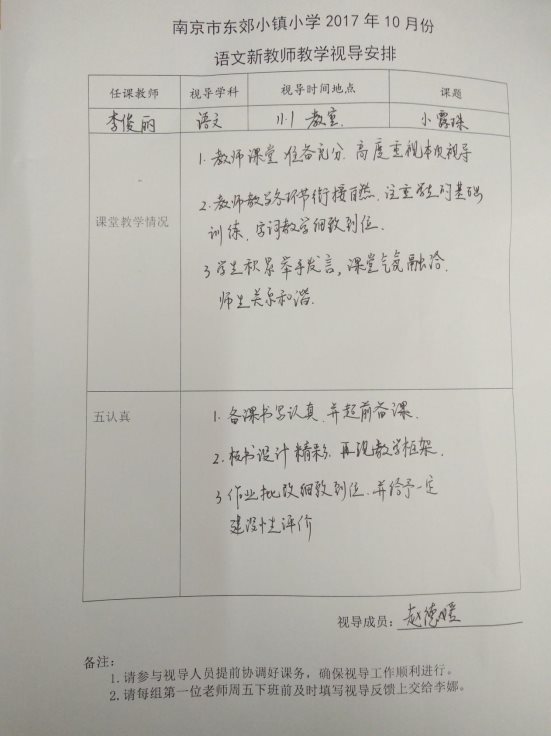 南京市东郊小镇小学 2017 年 10 月份
语文新教师教学视导安排
任课教师 视导学科 视导时间地点 课题
李俊丽 语文 小1 教室. 小露珠
课堂教学情况
1. 教师课堂准备充分. 高度重视本次视导
2. 教师教学各环节衔接自然. 注重学生的基础
训练. 字词教学细致到位.
3 学生积极举手发言, 课堂气氛融洽.
师生关系和谐.
五认真
1. 备课书写认真. 并超前备课.
2. 板书设计精彩. 再现教学框架.
3 作业批改细致到位. 并给予一定
建设性评价
视导成员: 赵德媛
备注:
1.请参与视导人员提前协调好课务，确保视导工作顺利进行。
2.请每组第一位老师周五下班前及时填写视导反馈上交给李娜。